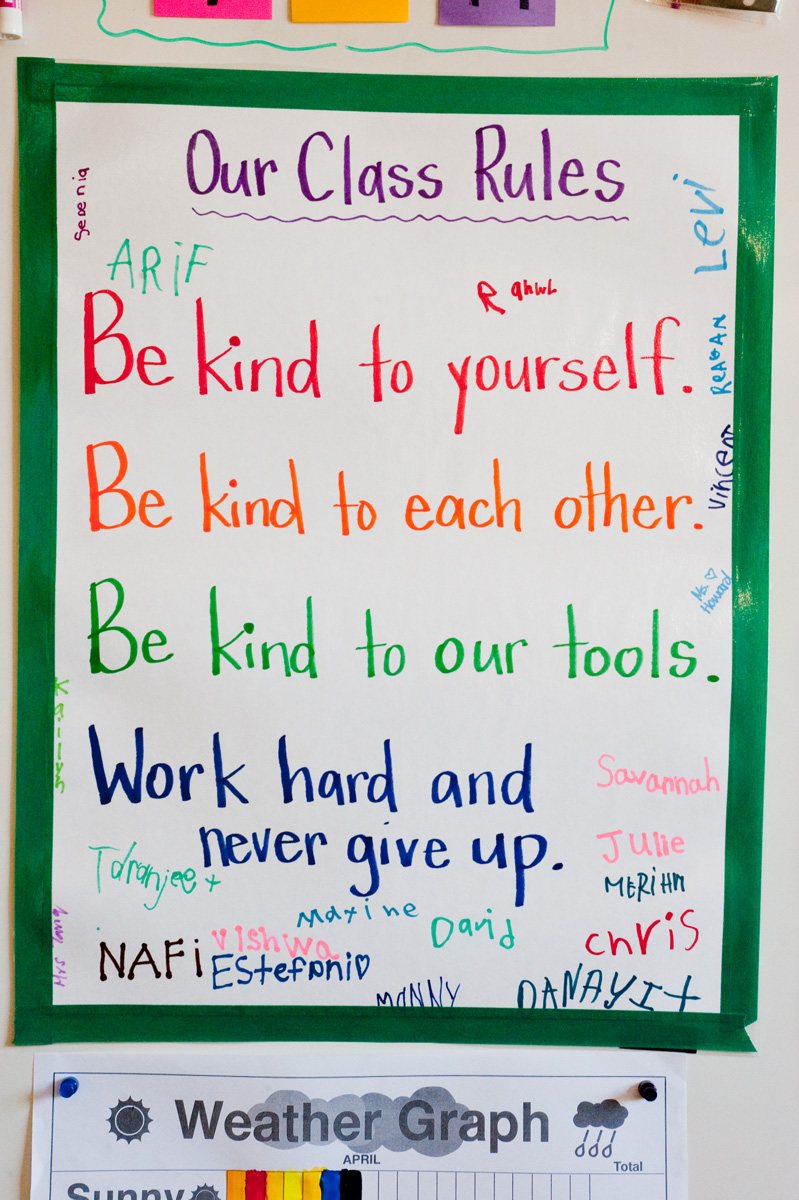 Our Class Rules
Levi
ARiF
Rahul
Be kind to yourself.
REAGAN
Vincent
Be kind to each other.
Ms. ♡
Howard
Be kind to our tools.
Work hard and
never give up.
Savannah
Julie
Taranjeet
MERiHM
Maxine
David
chris
Mrs Tang
NAFi
Vishwa
EStefani
MaNNY
DANAYIt
Weather Graph
APRIL
Total
Sunny